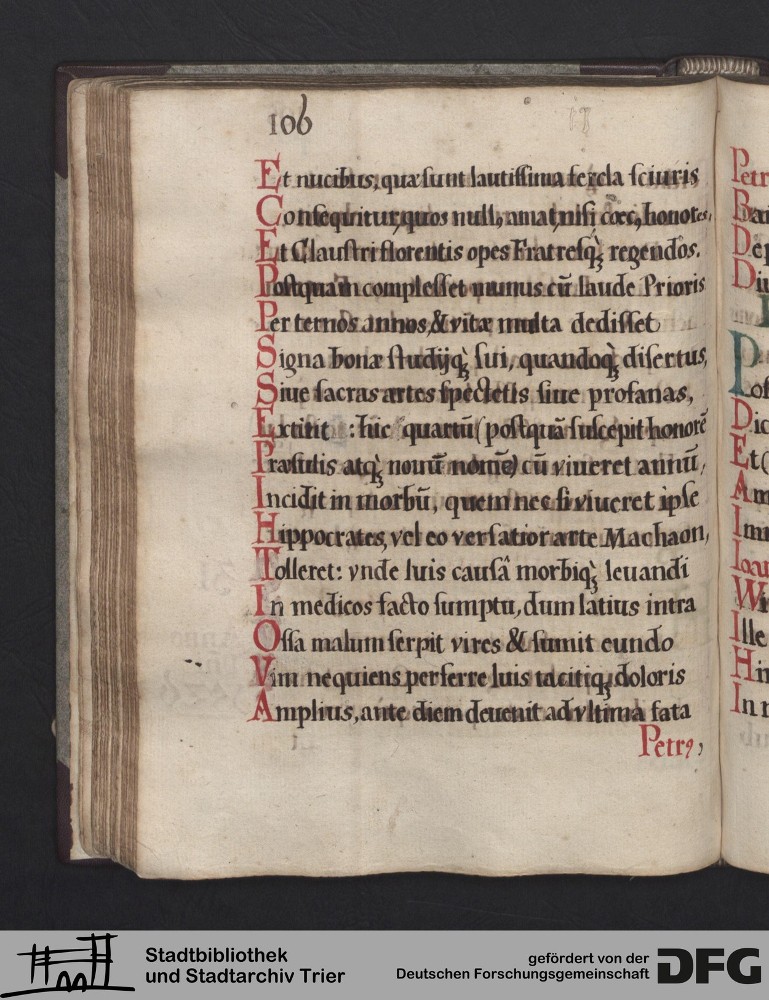 106
Et nucibus, quæ sunt lautissima fercla sciuris
Consequitur, quos null, amat, nisi cæc, honores,
Et Claustri florentis opes Fratresq; regendos.
Postquam complesset munus cū laude Prioris
Per ternos annos, & vitæ multa dedisset
Signa bonæ studijq; sui, quandoq; disertus,
Siue sacras artes spectetis siue profanas,
Extitit : hic quartū (postquā suscepit honorē
Præsulis atq; nouū nomē) cū viueret annū,
Incidit in morbū, quem nec si viueret ipse
Hippocrates, vel eo versatior arte Machaon,
Tolleret: vnde luis causâ morbiq; leuandi
In medicos facto sumptu, dum latius intra
Ossa malum serpit vires & sumit eundo
Vim nequiens perferre luis tacitiq; doloris
Amplius, ante diem deuenit ad vltima fata
Petrꝰ,
Stadtbibliothek
und Stadtarchiv Trier
gefördert von der
Deutschen Forschungsgemeinschaft
DFG